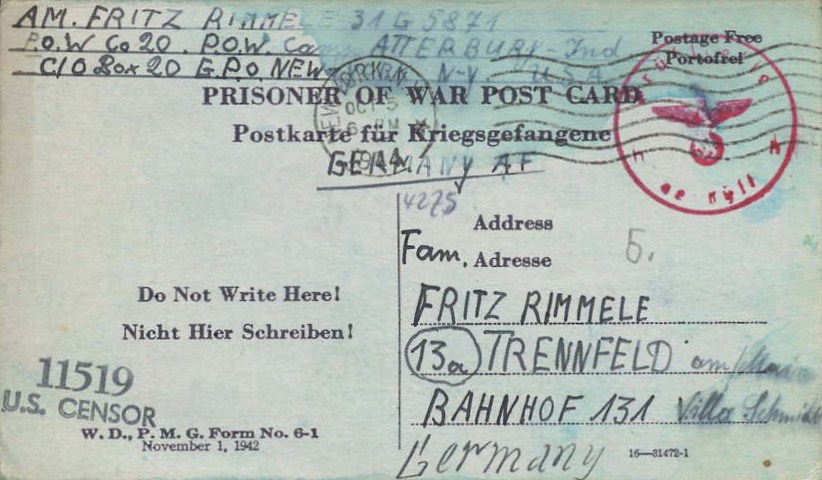 AM. FRITZ RIMMELE 31 G 5871
P.O.W Co 20. P.O.W. Camp ATTERBURY-Ind.
C/O Box 20 G.P.O. NEW N-Y. U.S.A
Postage Free
Portofrei
PRISONER OF WAR POST CARD
Postkarte für Kriegsgefangene
OCT 5
PM
1944
GERMANY AF
4275
Address
Fam. Adresse
5.
Do Not Write Here!
Nicht Hier Schreiben!
FRITZ RIMMELE
13a TRENNFELD am/Main
BAHNHOF 131 Villa Schmidt
Germany
11519
U.S. CENSOR
W. D., P. M. G. Form No. 6-1
November 1, 1942
16—31472-1